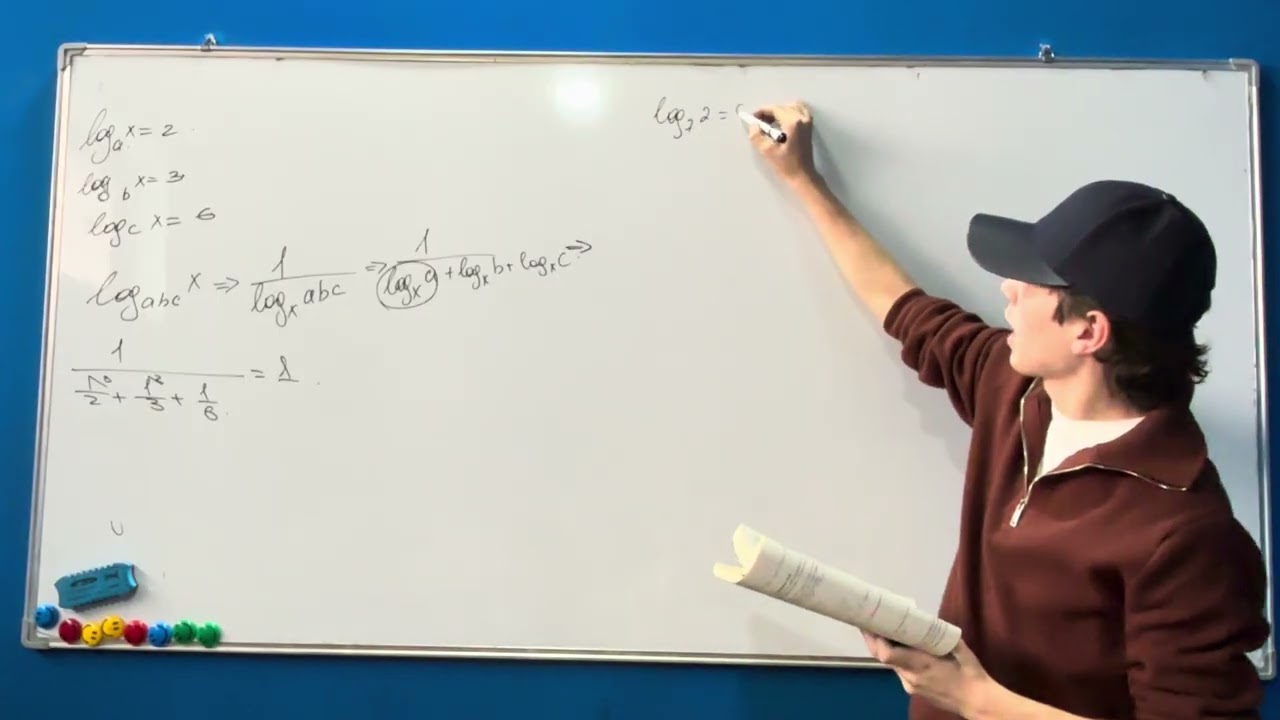 logₐ x = 2
log_b x = 3
log_c x = 6
log_abc x ⇒ 1/(logₓ abc) ⇒ 1/(logₓ a + logₓ b + logₓ c) ⇒
1/(1/2 + 1/3 + 1/6) = 1
log₇ 2 =